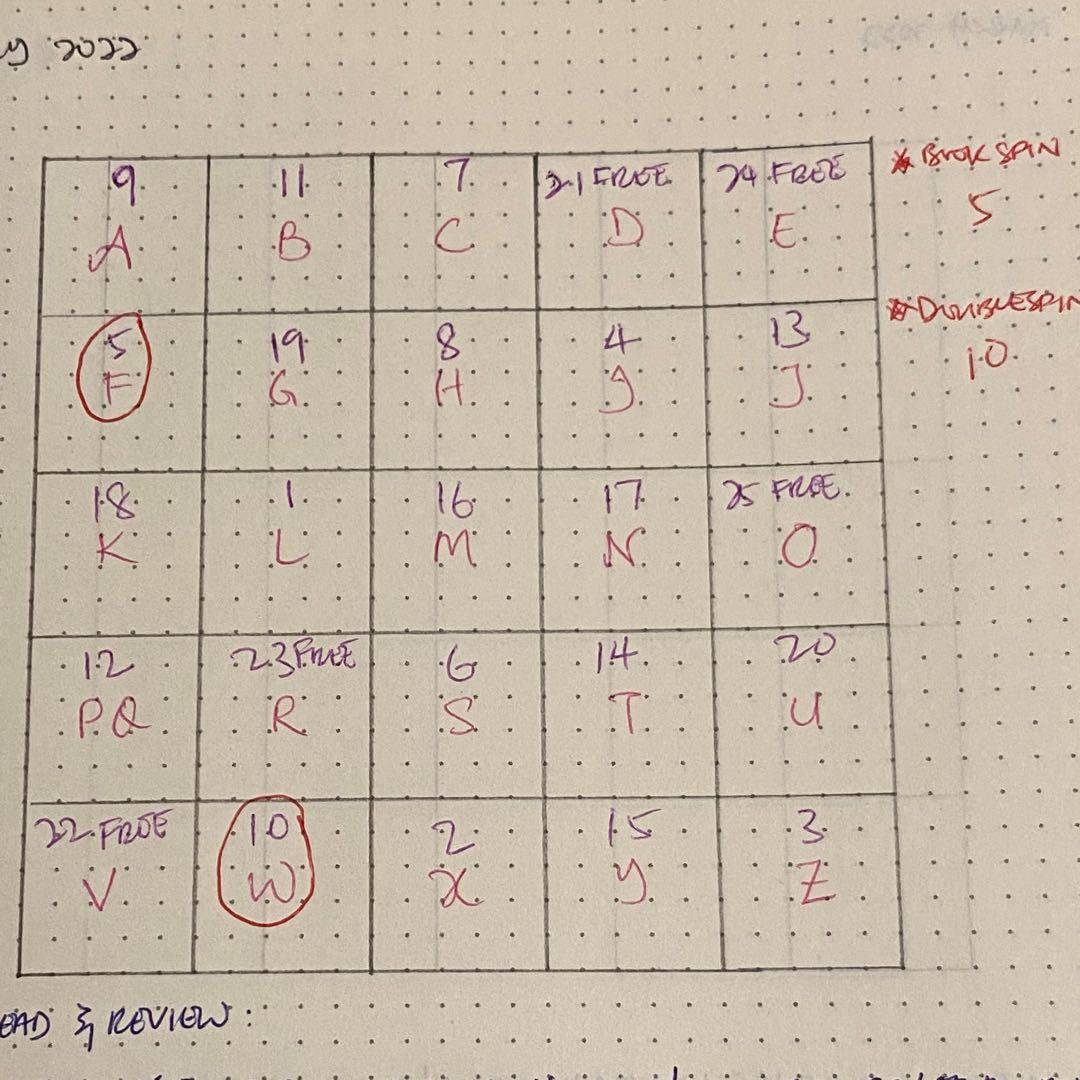 y 2022
9 11 7 21 FREE 24 FREE
A B C D E
5 19 8 4 13
F G H I J
18 1 16 17 25 FREE
K L M N O
12 23 FREE 6 14 20
P.Q R S T U
22 FREE 10 2 15 3
V W X Y Z
* BOOK SPIN
5
* DOUBLE SPIN
10
EAD & REVIEW: